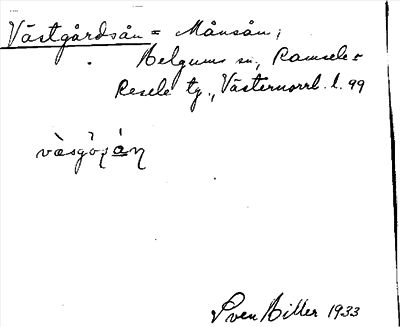 Västgårdsån = Månsån,
Helgums sn, Ramsele-
Resele tg., Västernorrl. l. 99
Sven Hiller 1933